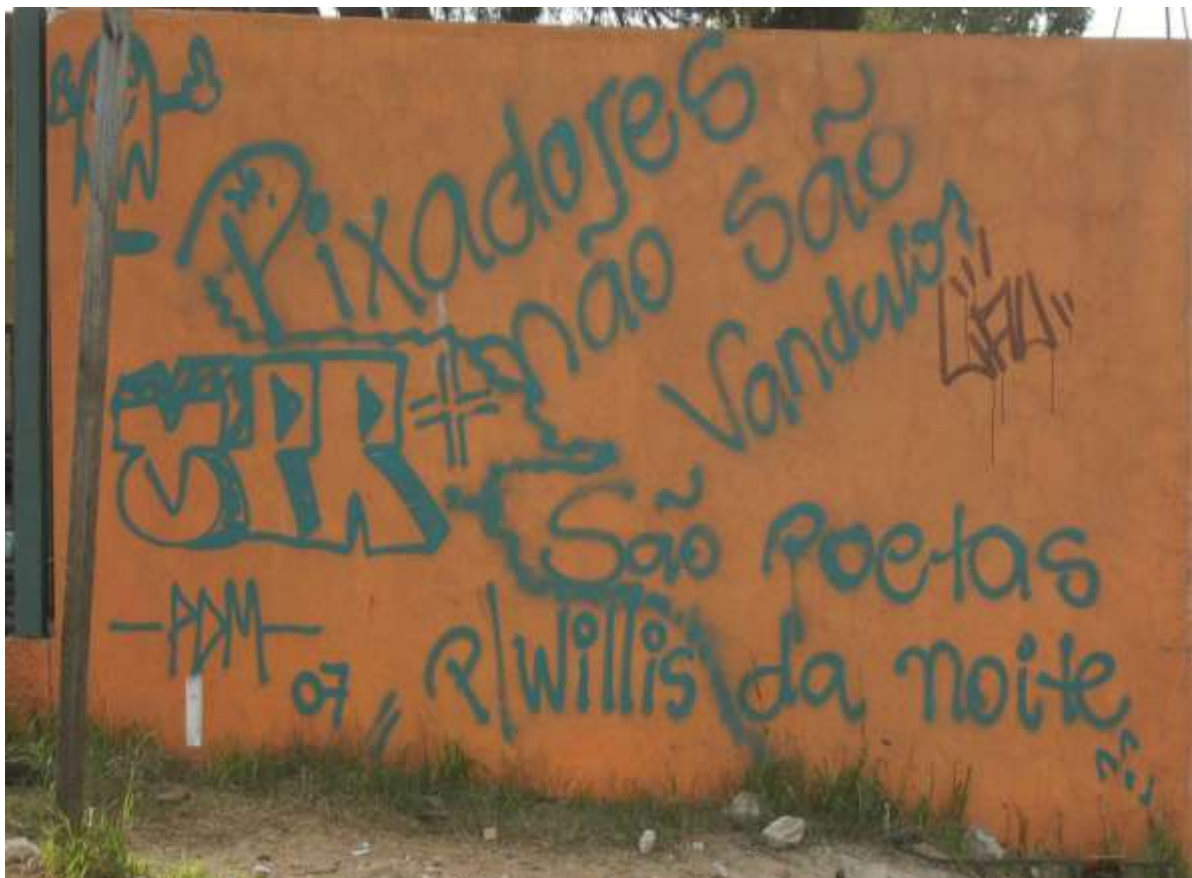 Pixadores
não são
Vandalos
São Poetas
da noite
P/Willis
PDM
07